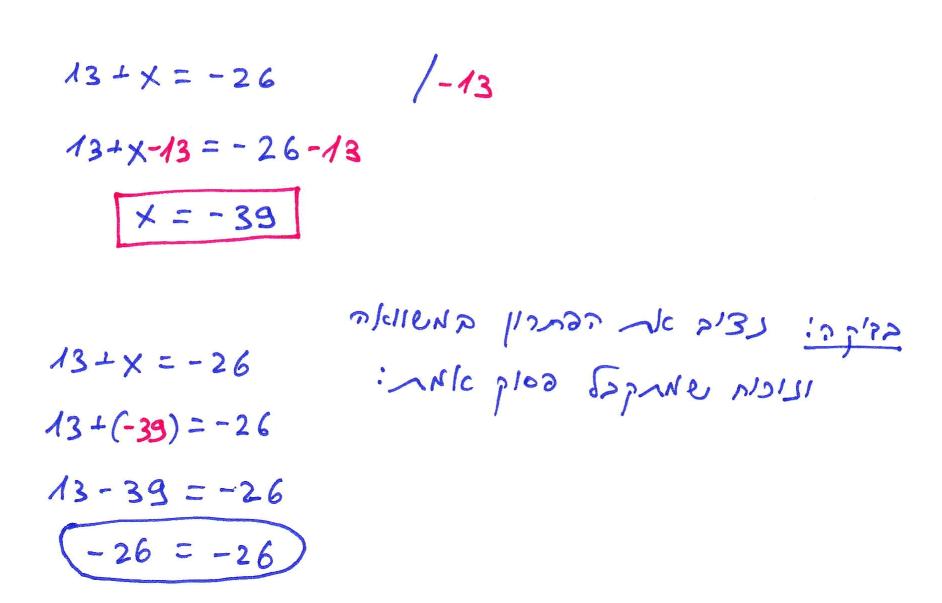 13 + x = -26 /-13
13+x-13 = -26-13
x = -39
בדיקה: נציב את הפתרון במשוואה
ונוכח שמתקבל פסוק אמת:
13 + x = -26
13 + (-39) = -26
13 - 39 = -26
-26 = -26